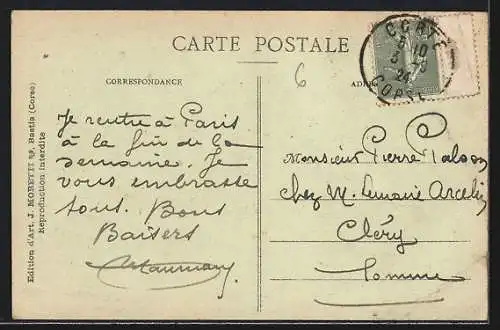 CARTE POSTALE
CORRESPONDANCE
6
Je rentre à Paris
à la fin de la
semaine. Je
vous embrasse
tous. Bons
Baisers
CORTE
5 10
3 -
24
CORSE
Monsieur Pierre
chez M. Lemaire Arcelin
Cléry
Somme
Edition d'Art. J. MORETTI Bastia (Corse)
Reproduction interdite